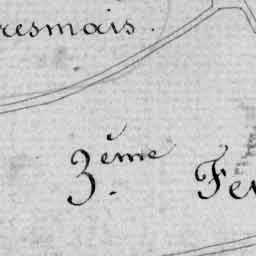 resmais.
3.ème Fe